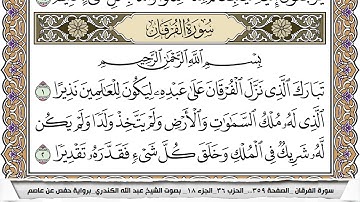 سُورَةُ الْفُرْقَانِ
بِسْمِ اللَّهِ الرَّحْمَٰنِ الرَّحِيمِ
تَبَارَكَ الَّذِي نَزَّلَ الْفُرْقَانَ عَلَىٰ عَبْدِهِ لِيَكُونَ لِلْعَالَمِينَ نَذِيرًا ١
الَّذِي لَهُ مُلْكُ السَّمَاوَاتِ وَالْأَرْضِ وَلَمْ يَتَّخِذْ وَلَدًا وَلَمْ يَكُن
لَّهُ شَرِيكٌ فِي الْمُلْكِ وَخَلَقَ كُلَّ شَيْءٍ فَقَدَّرَهُ تَقْدِيرًا ٢
سورة الفرقان _ الصفحة ٣٥٩ _ الحزب ٣٦ _ الجزء ١٨ _ بصوت الشيخ عبد الله الكندري _ برواية حفص عن عاصم